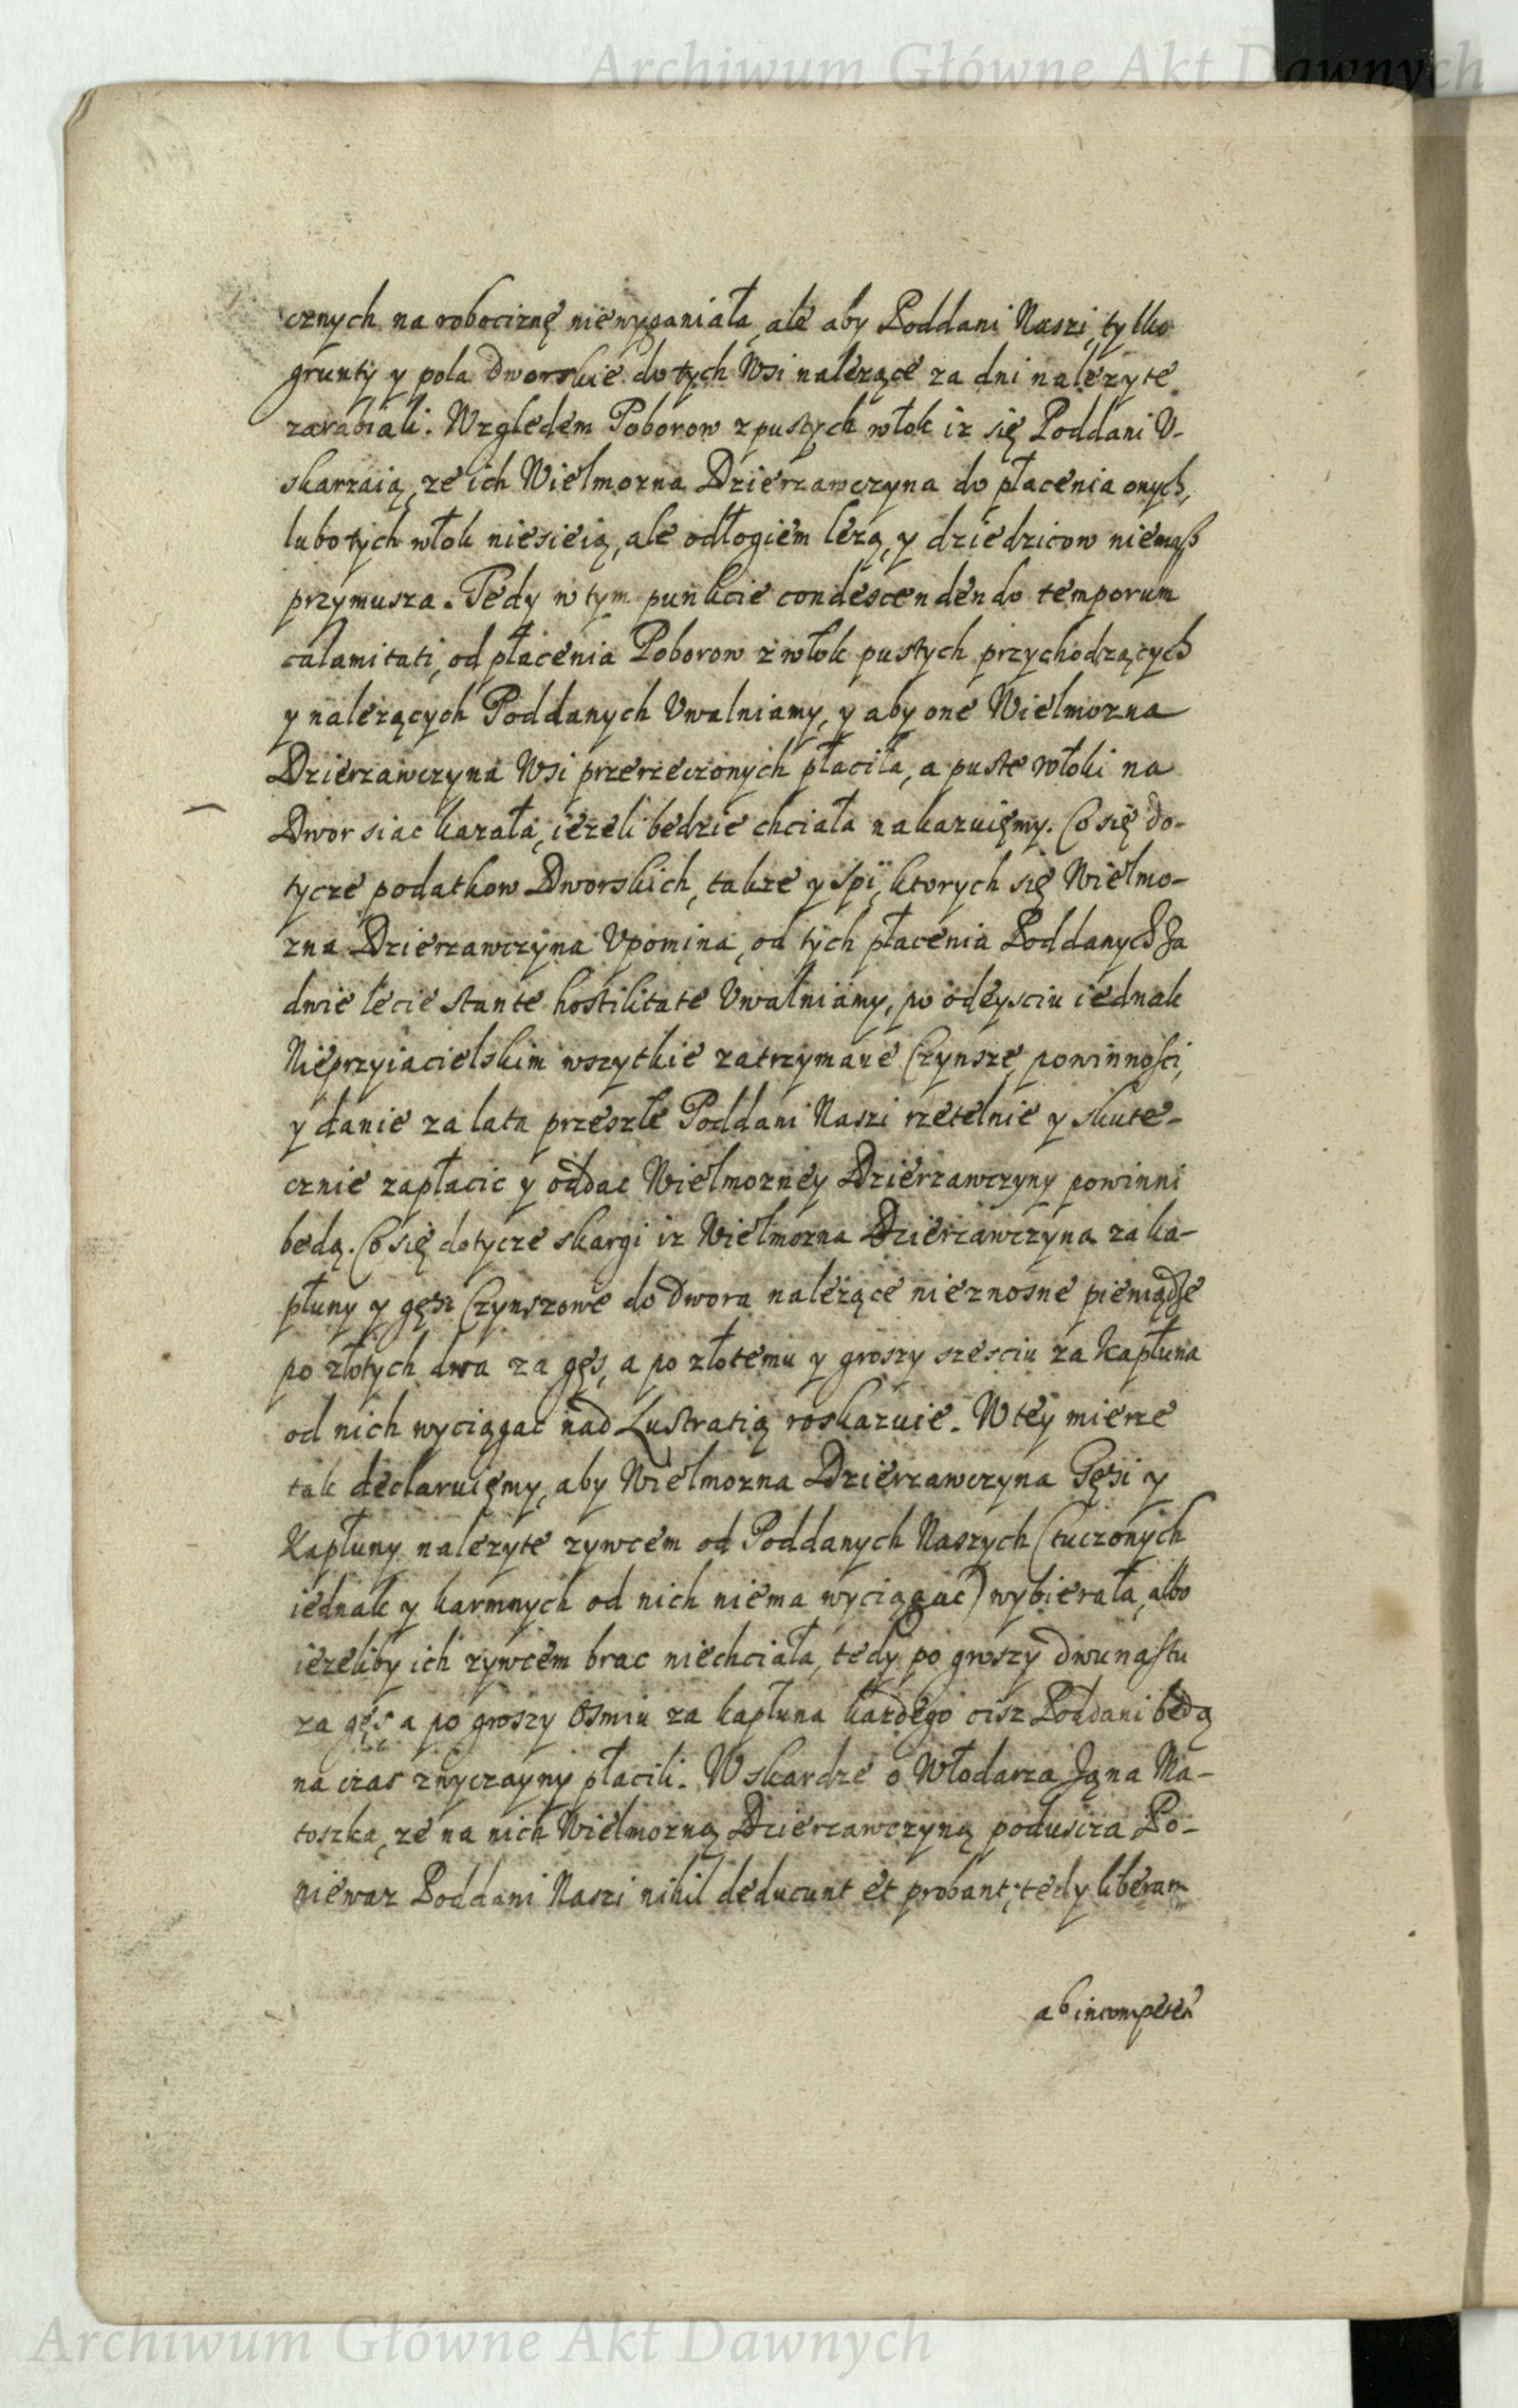 Archiwum Główne Akt Dawnych
cznych na robociznę niewyganiała, ale aby Poddani Naszi, tylko
grunty y pola Dworskie do tych Wsi nalezące za dni nalezyte
zarabiali. Względem Poborow z pustych włok iz się Poddani V-
skarzaią, ze ich Wielmozna Dzierzawczyna do płacenia onych,
lubo tych włok niesieią, ale odłogiem lezą, y dziedzicow niemasz
przymusza. Tedy w tym punkcie condescendendo temporum
calamitati, od płacenia Poborow z włok pustych przychodzących
y nalezących Poddanych Vwalniamy, y aby one Wielmozna
Dzierzawczyna Wsi przerzeczonych płaciła, a puste włoki na
Dwor siac kazała, iezeli bedzie chciała nakazuięmy. Co się do-
tycze podatkow Dworskich, takze y Spi, ktorych się Wielmo-
zna Dzierzawczyna Vpomina, od tych płacenia Poddanych Za
dwie lecie stante hostilitate Vwalniamy, po odeysciu iednak
Nieprzyiacielskim wszytkie zatrzymane Czynsze, powinności,
y danie za lata przeszłe Poddani Naszi rzetelnie y skute-
cznie zapłacic y oddac Wielmozney Dzierzawczyny powinni
bedą. Co się dotycze skargi iz Wielmozna Dzierzawczyna za ka-
płuny y gęsi Czynszowe do Dwora nalezące nieznosne pieniądze
po złotych dwa za gęs, a po złotemu y groszy szesciu za Kapłuna
od nich wyciągac nad Lustratią roskazuie. W tey mierze
tak declaruięmy, aby Wielmozna Dzierzawczyna Gęsi y
Kapłuny nalezyte zywcem od Poddanych Naszych (tuczonych
iednak y karmnych od nich niema wyciągac) wybierała, albo
iezeliby ich zywcem brac niechciała, tedy po groszy dwunastu
za gęs, a po groszy osmiu za kapłuna kazdego cisz Poddani bedą
na czas zwyczayny płacili. W skardze o Włodarza Jana Ma-
toszka, ze na nich Wielmozną Dzierzawczyną poduscza Po-
niewaz Poddani Naszi nihil deducunt et probant, tedy liberam
ab incompeten
Archiwum Główne Akt Dawnych